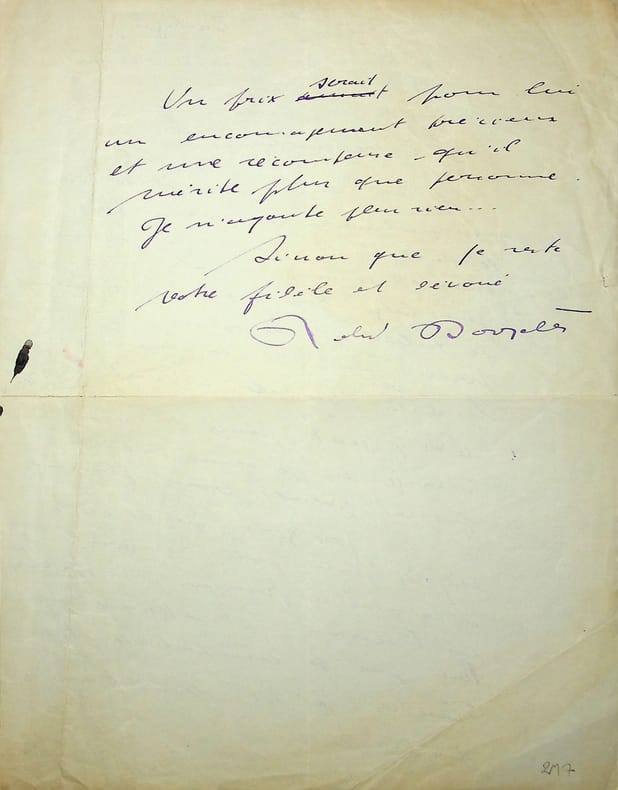 Un prix serait pour lui
un encouragement précieux
et une récompense qu'il
mérite plus que personne.
Je n'ajoute plus rien...
Sinon que je reste
votre fidèle et dévoué
217